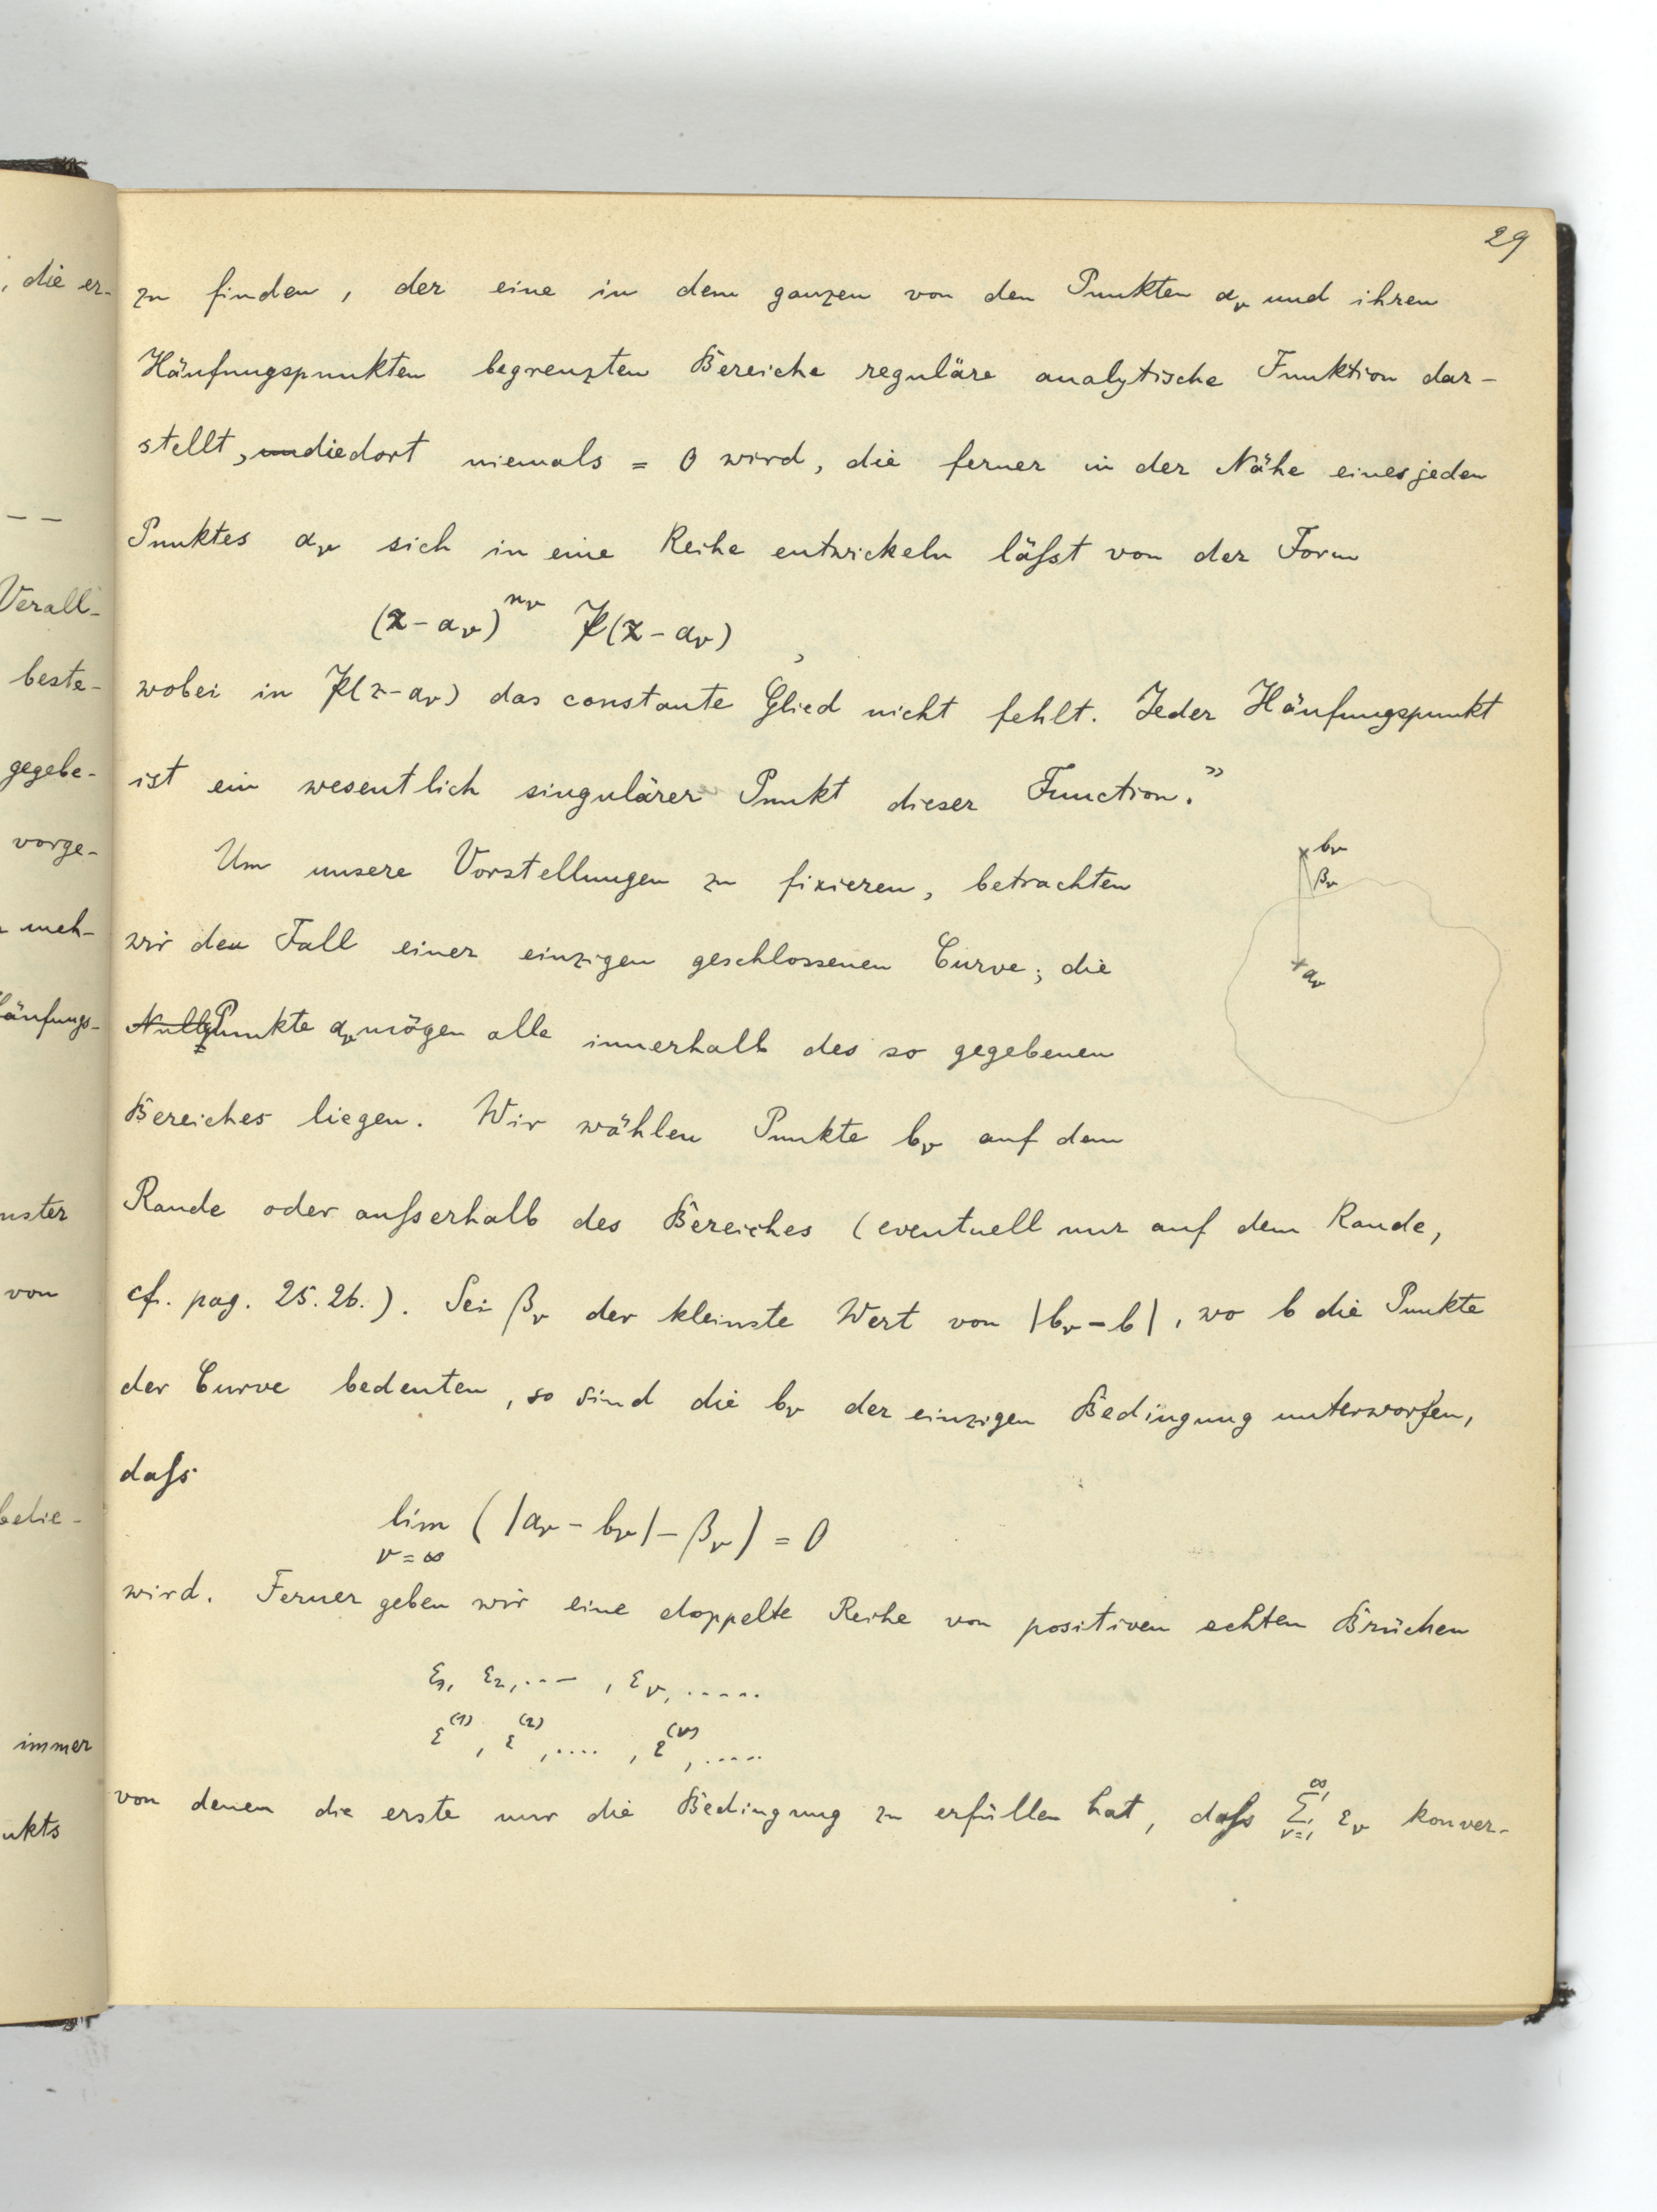 29
zu finden, der eine in dem ganzen von den Punkten aᵥ und ihren
Häufungspunkten begrenzten Bereiche reguläre analytische Funktion dar-
stellt, die dort niemals = 0 wird, die ferner in der Nähe eines jeden
Punktes aᵥ sich in eine Reihe entwickeln läſst von der Form
(x - aᵥ)^nᵥ 𝔓(x - aᵥ),
wobei in 𝔓(x - aᵥ) das constante Glied nicht fehlt. Jeder Häufungspunkt
ist ein wesentlich singulärer Punkt dieser Function."
Um unsere Vorstellungen zu fixieren, betrachten
wir den Fall einer einzigen geschlossenen Curve; die
Punkte aᵥ mögen alle innerhalb des so gegebenen
Bereiches liegen. Wir wählen Punkte bᵥ auf dem
Rande oder auſserhalb des Bereiches (eventuell nur auf dem Rande,
cf. pag. 25. 26.). Sei βᵥ der kleinste Wert von |bᵥ - b|, wo b die Punkte
der Curve bedeuten, so sind die bᵥ der einzigen Bedingung unterworfen,
daſs
lim (|aᵥ - bᵥ| - βᵥ) = 0
ν = ∞
wird. Ferner geben wir eine doppelte Reihe von positiven echten Brüchen
ε₁, ε₂, ... , εᵥ, .....
ε⁽¹⁾, ε⁽²⁾, .... , ε⁽ᵛ⁾, .....
von denen die erste nur die Bedingung zu erfüllen hat, daſs ∑_{ν=1}^{∞} εᵥ konver-
bᵥ
βᵥ
aᵥ
, die er-
— —
Verall-
beste-
gegebe-
vorge-
meh-
äufungs-
nster
von
belie-
immer
nkts